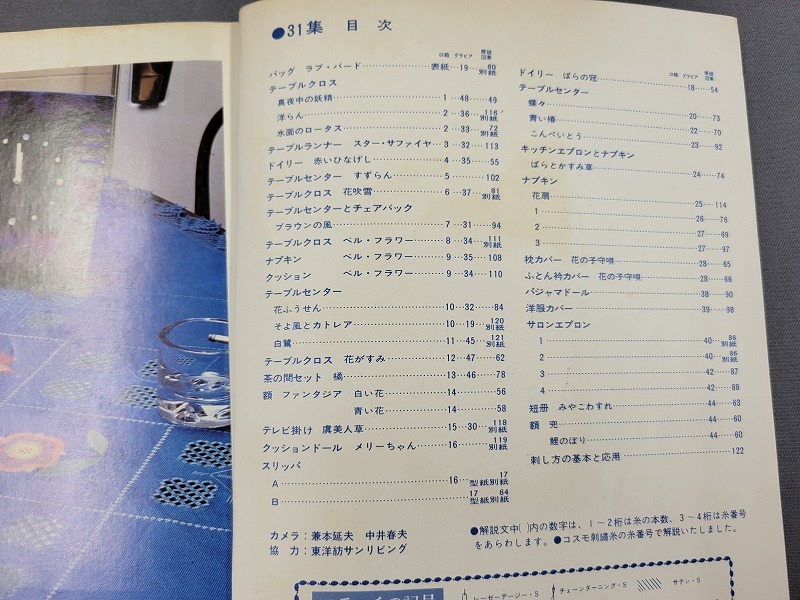 ●31集 目次
口絵 グラビア 解説図案
バッグ ラブ・バード……表紙…19……60別紙
テーブルクロス
真夜中の妖精……1…48……49
洋らん……2…36……116別紙
水面のロータス……2…33……72別紙
テーブルランナー スター・サファイヤ…3…32……113
ドイリー 赤いひなげし……4…35……55
テーブルセンター すずらん……5………102
テーブルクロス 花吹雪……6…37……81別紙
テーブルセンターとチェアバック
ブラウンの風……7…31……94
テーブルクロス ベル・フラワー……8…34……111別紙
ナプキン ベル・フラワー……9…35……108
クッション ベル・フラワー……9…34……110
テーブルセンター
花ふうせん……10…32……84
そよ風とカトレア……10…19……120別紙
白鷺……11…45……121別紙
テーブルクロス 花がすみ……12…47……62
茶の間セット 橘……13…46……78
額 ファンタジア 白い花……14………56
青い花……14………58
テレビ掛け 虞美人草……15…30……118別紙
クッションドール メリーちゃん……16………119別紙
スリッパ
A……16…17型紙別紙
B……17型紙 64別紙
カメラ：兼本延夫 中井春夫
協力：東洋紡サンリビング
口絵 グラビア 解説図案
ドイリー ばらの冠……18……54
テーブルセンター
蝶々……20……73
青い椿……22……70
こんぺいとう……23……92
キッチンエプロンとナプキン
ばらとかすみ草……24……74
ナプキン
花扇……25……114
1……26……76
2……27……69
3……27……97
枕カバー 花の子守唄……28……65
ふとん衿カバー 花の子守唄……28……66
パジャマドール……38……90
洋服カバー……39……98
サロンエプロン
1……40……86別紙
2……40……86別紙
3……42……87
4……42……88
短冊 みやこわすれ……44……63
額 兜……44……60
鯉のぼり……44……60
刺し方の基本と応用……122
●解説文中( )内の数字は、1～2桁は糸の本数、3～4桁は糸番号
をあらわします。●コスモ刺繍糸の糸番号で解説いたしました。
レーゼーデージー・S
チェーンダーニング・S
サテン・S